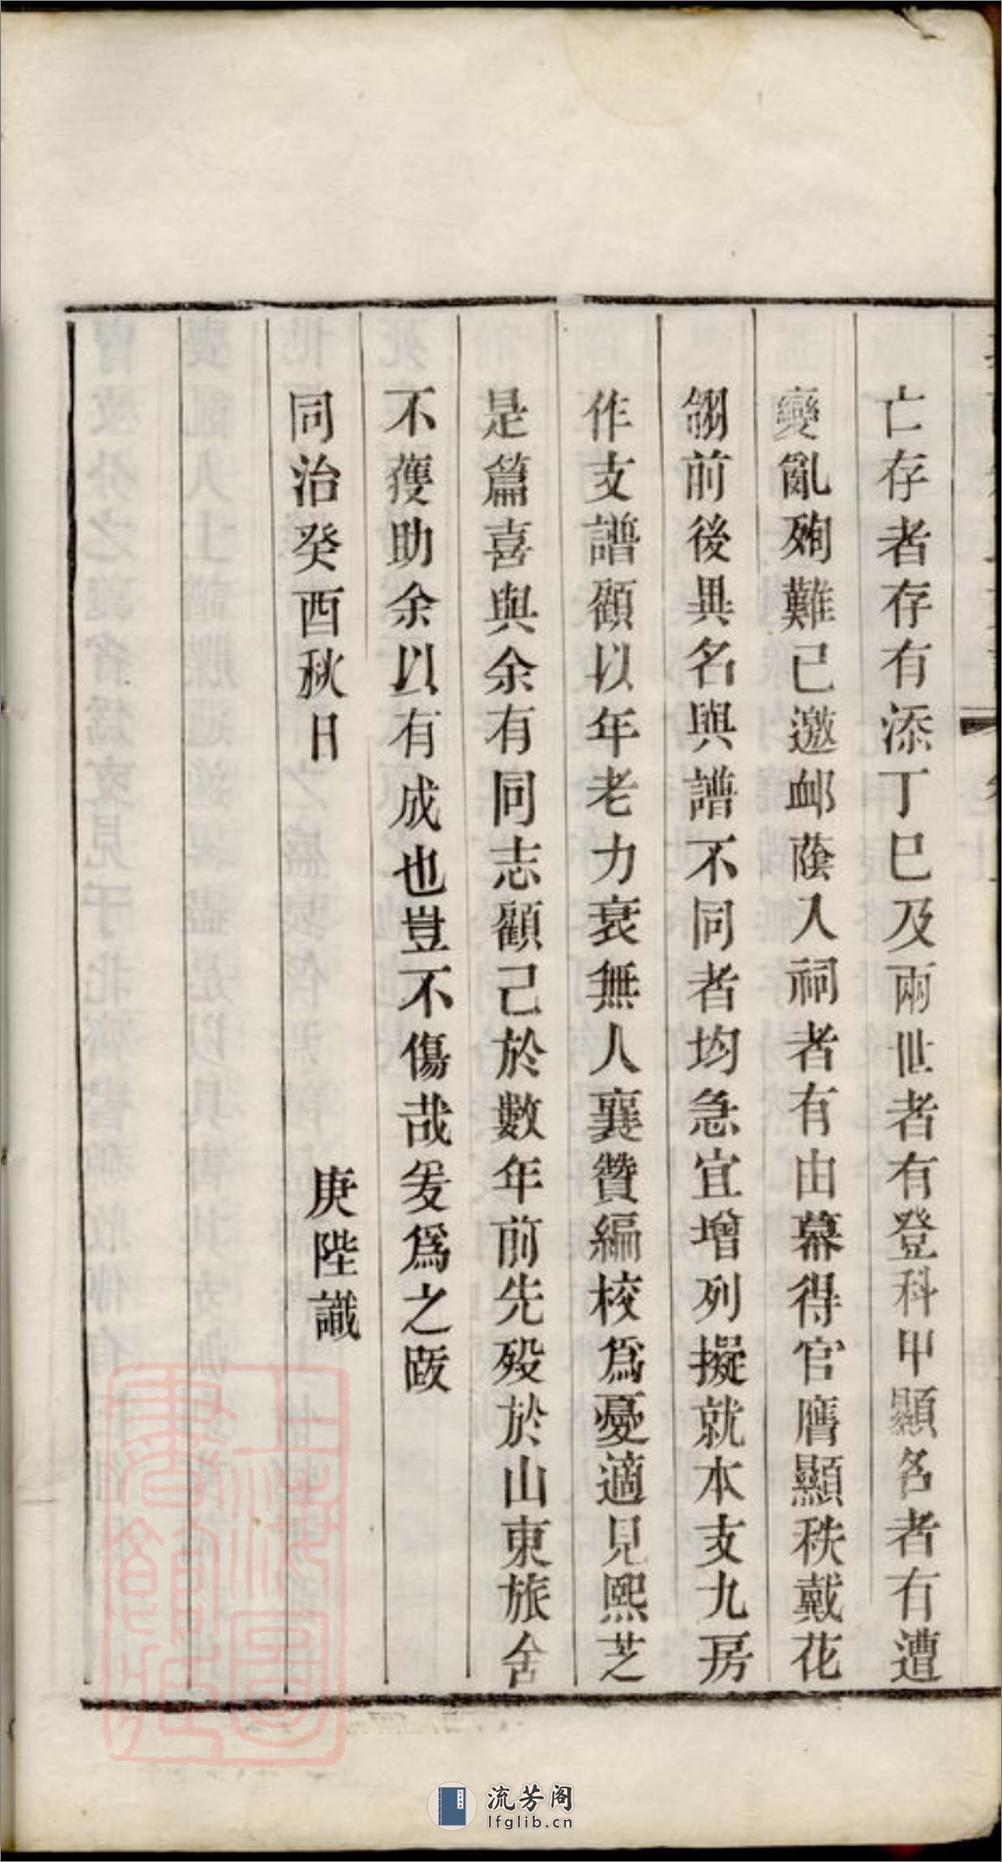 亡存者存有添丁巳及兩世者有登科甲顯名者有遭
變亂殉難已邀卹蔭入祠者有由幕得官膺顯秩戴花
翎前後異名與譜不同者均急宜增列擬就本支九房
作支譜顧以年老力衰無人襄贊編校爲憂適見熙芝
是篇喜與余有同志顧己於數年前先歿於山東旅舍
不獲助余以有成也豈不傷哉爰爲之跋
同治癸酉秋日
庚陛識
上海圖書館藏
流芳阁
lfglib.cn